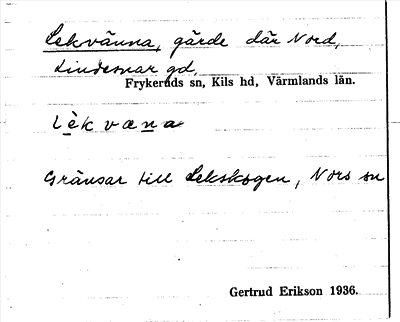 Lekvänna, gärde där Nord,
Lindesnar gd,
Frykeruds sn, Kils hd, Värmlands län.
lèkvæna
Gränsar till Lekskogen, Nors sn
Gertrud Erikson 1936.